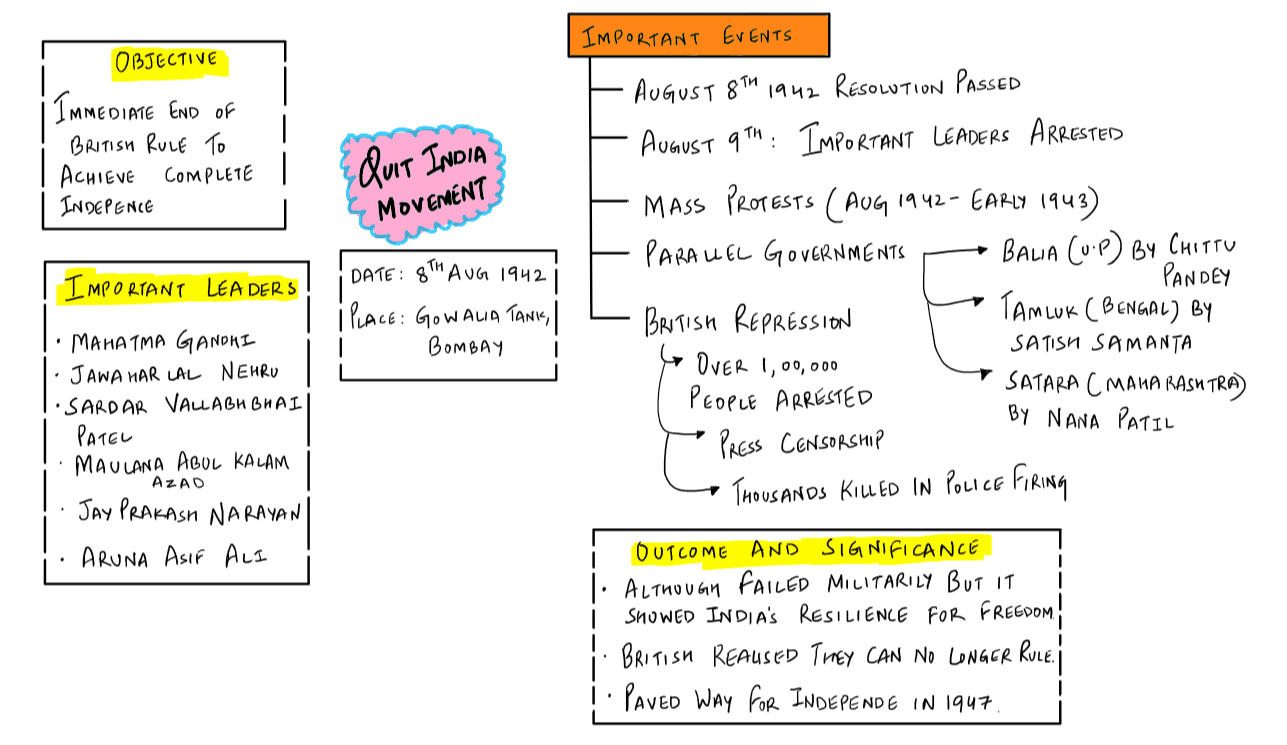 OBJECTIVE
IMMEDIATE END OF
BRITISH RULE TO
ACHIEVE COMPLETE
INDEPENCE
IMPORTANT LEADERS
• MAHATMA GANDHI
• JAWAHAR LAL NEHRU
• SARDAR VALLABHBHAI
PATEL
• MAULANA ABUL KALAM
AZAD
• JAY PRAKASH NARAYAN
• ARUNA ASIF ALI
QUIT INDIA
MOVEMENT
DATE: 8TH AUG 1942
PLACE: GOWALIA TANK,
BOMBAY
IMPORTANT EVENTS
AUGUST 8TH 1942 RESOLUTION PASSED
AUGUST 9TH: IMPORTANT LEADERS ARRESTED
MASS PROTESTS (AUG 1942 - EARLY 1943)
PARALLEL GOVERNMENTS
BALIA (U.P) BY CHITTU
PANDEY
TAMLUK (BENGAL) BY
SATISH SAMANTA
SATARA (MAHARASHTRA)
BY NANA PATIL
BRITISH REPRESSION
OVER 1,00,000
PEOPLE ARRESTED
PRESS CENSORSHIP
THOUSANDS KILLED IN POLICE FIRING
OUTCOME AND SIGNIFICANCE
• ALTHOUGH FAILED MILITARILY BUT IT
SHOWED INDIA'S RESILIENCE FOR FREEDOM.
• BRITISH REALISED THEY CAN NO LONGER RULE.
• PAVED WAY FOR INDEPENDE IN 1947.